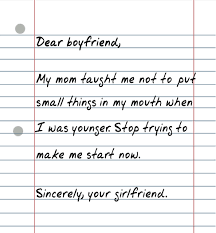 Dear boyfriend,
My mom taught me not to put
small things in my mouth when
I was younger. Stop trying to
make me start now.
Sincerely, your girlfriend.